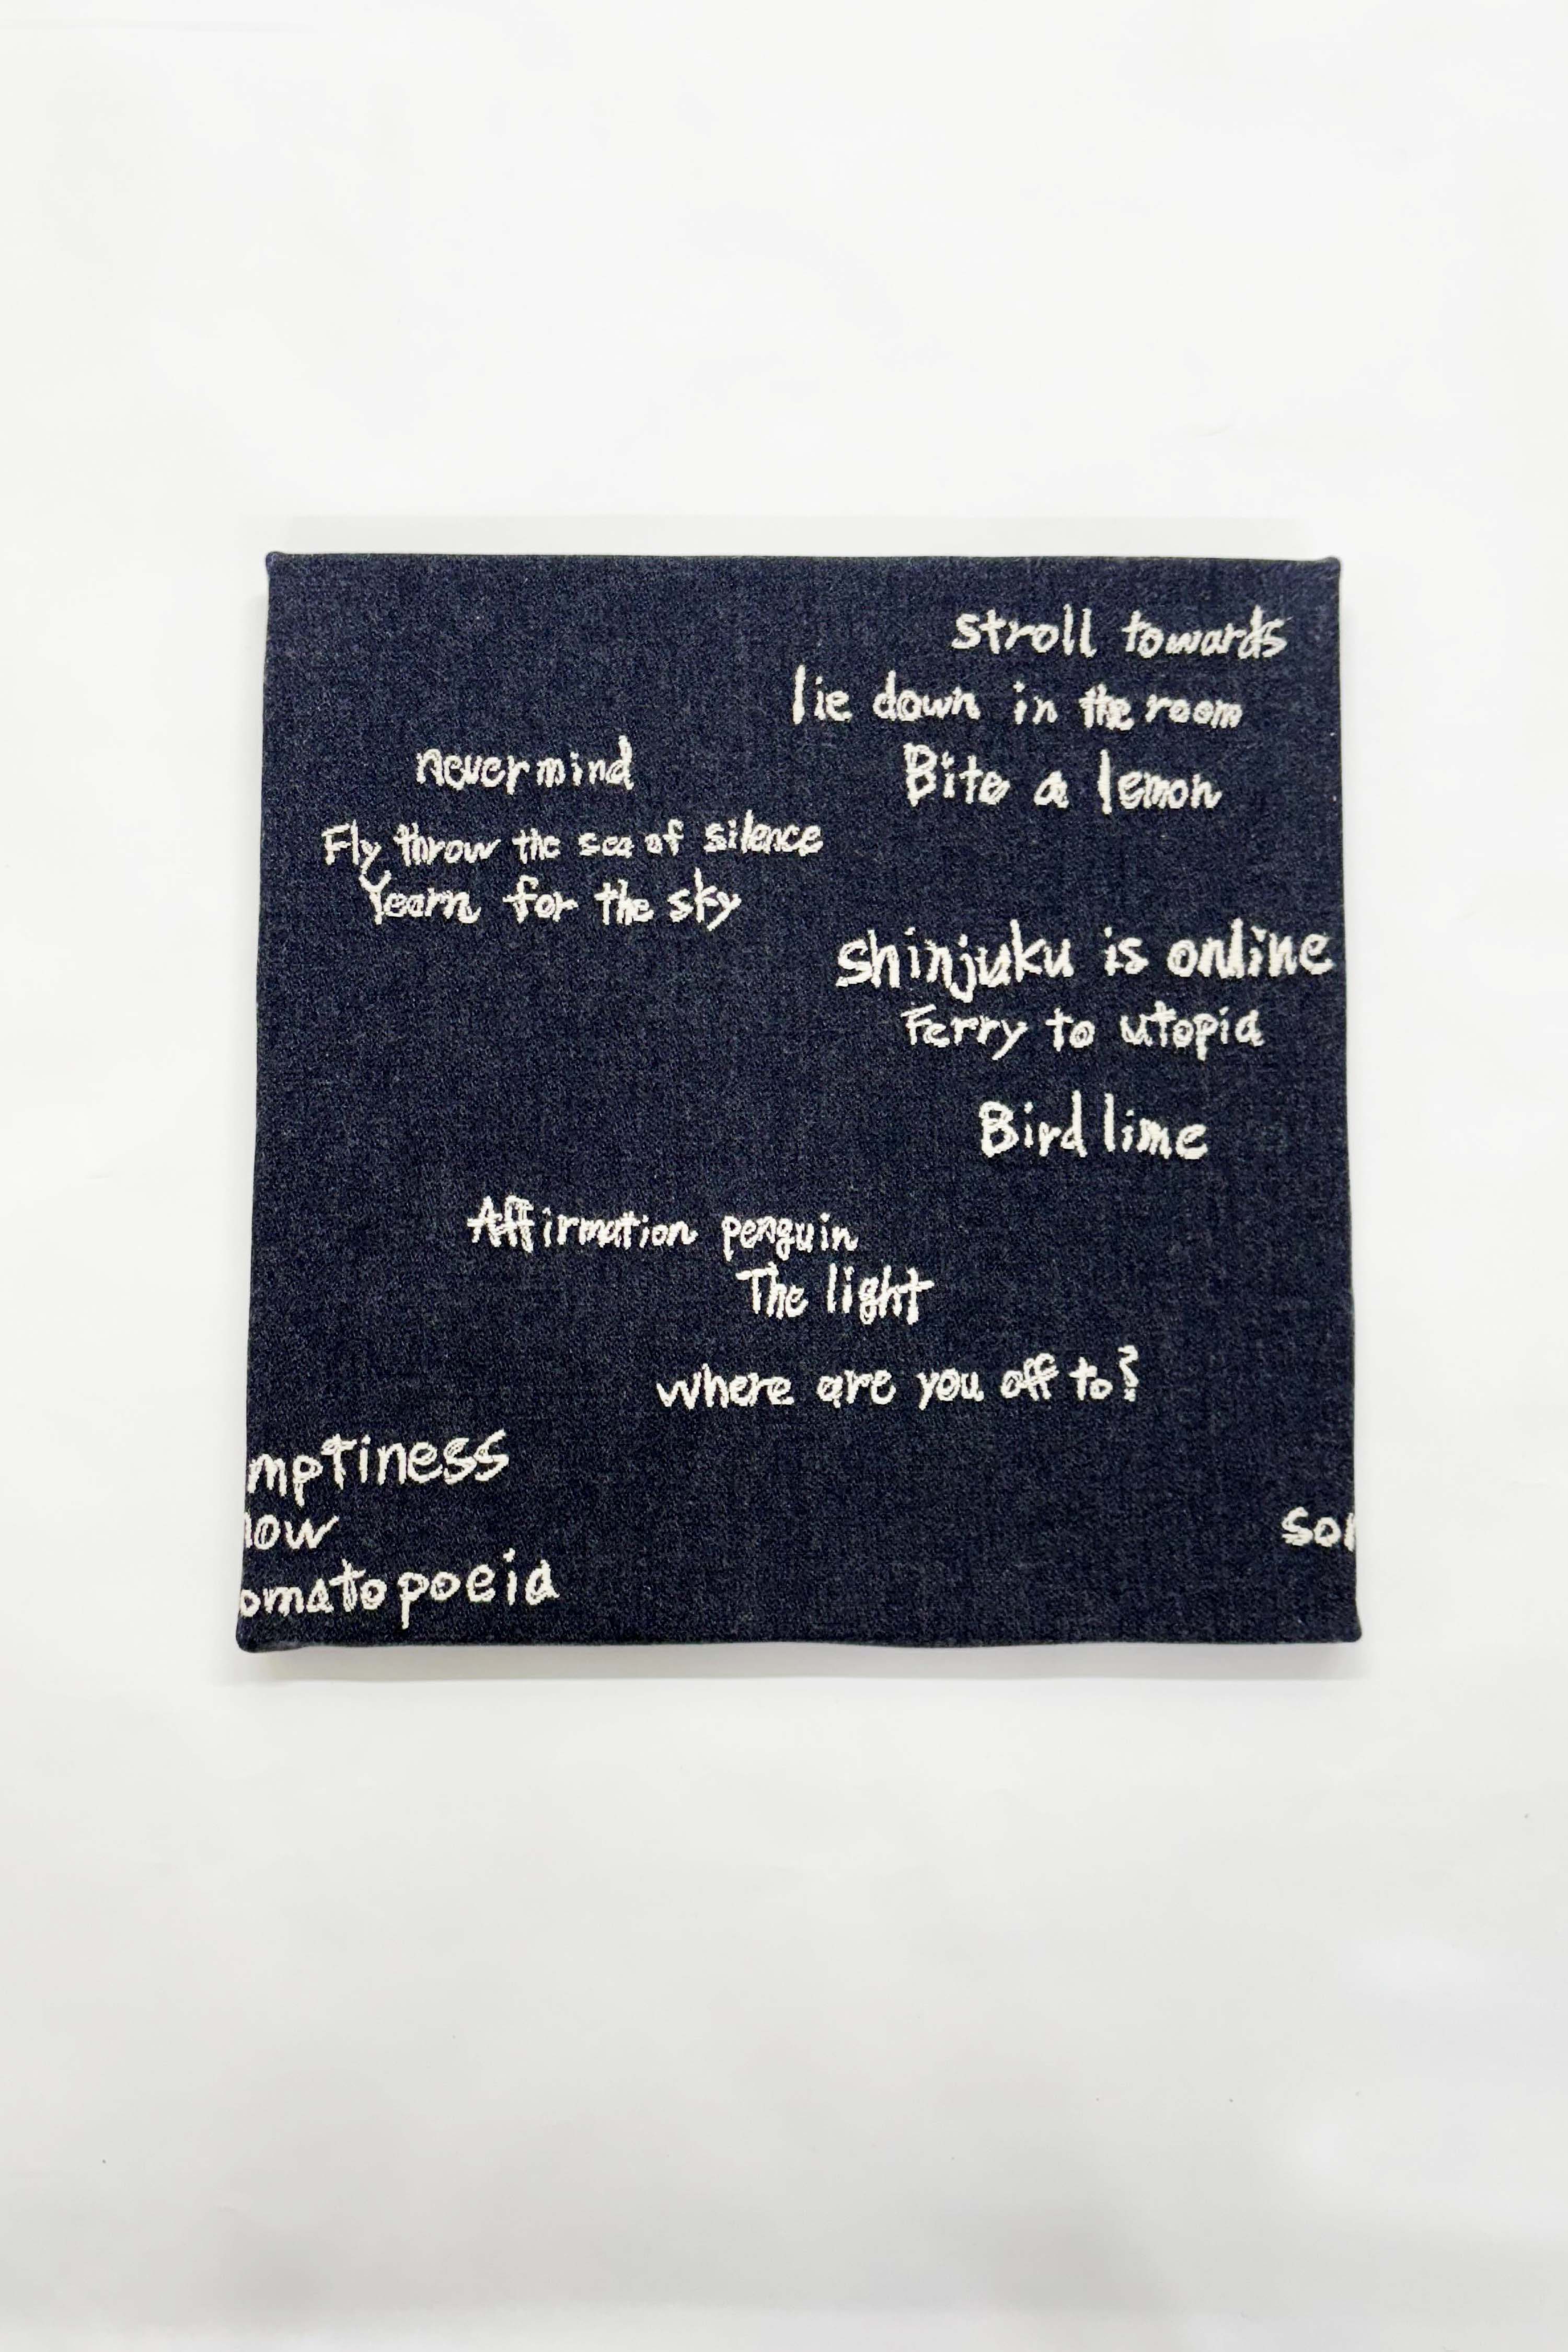 stroll towards
lie down in the room
nevermind
Bite a lemon
Fly throw the sea of silence
Yearn for the sky
shinjuku is online
Ferry to utopia
Bird lime
Affirmation penguin
The light
where are you off to?
mptiness
now
omatopoeia